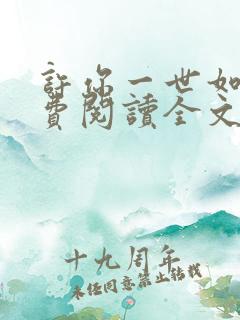 許你一世如
費閱讀全文
十九周年
未經同意禁止轉載